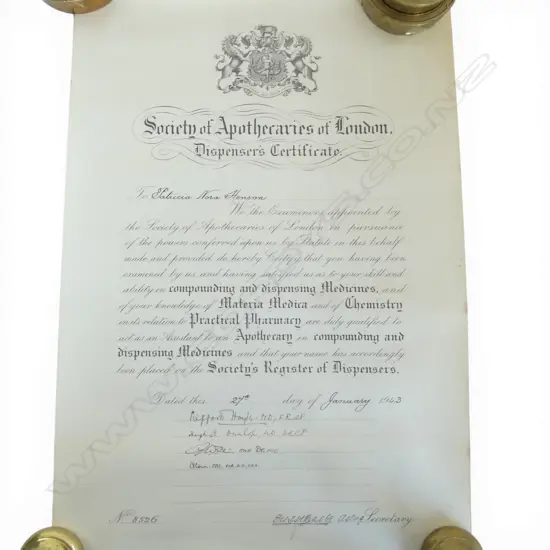 Society of Apothecaries of London.
Dispenser's Certificate.
To Patricia Nora Henson
We the Examiners appointed by
the Society of Apothecaries of London in pursuance
of the powers conferred upon us by Statute in this behalf
made and provided do hereby Certify that you having been
examined by us, and having satisfied us as to your skill and
ability in compounding and dispensing Medicines, and
of your knowledge of Materia Medica and of Chemistry
in its relation to Practical Pharmacy are duly qualified to
act as an Assistant to an Apothecary in compounding and
dispensing Medicines and that your name has accordingly
been placed on the Society's Register of Dispensers.
Dated this 27th day of January 1943
M.D.
Dunlop M.D.
No. 8526
Secretary